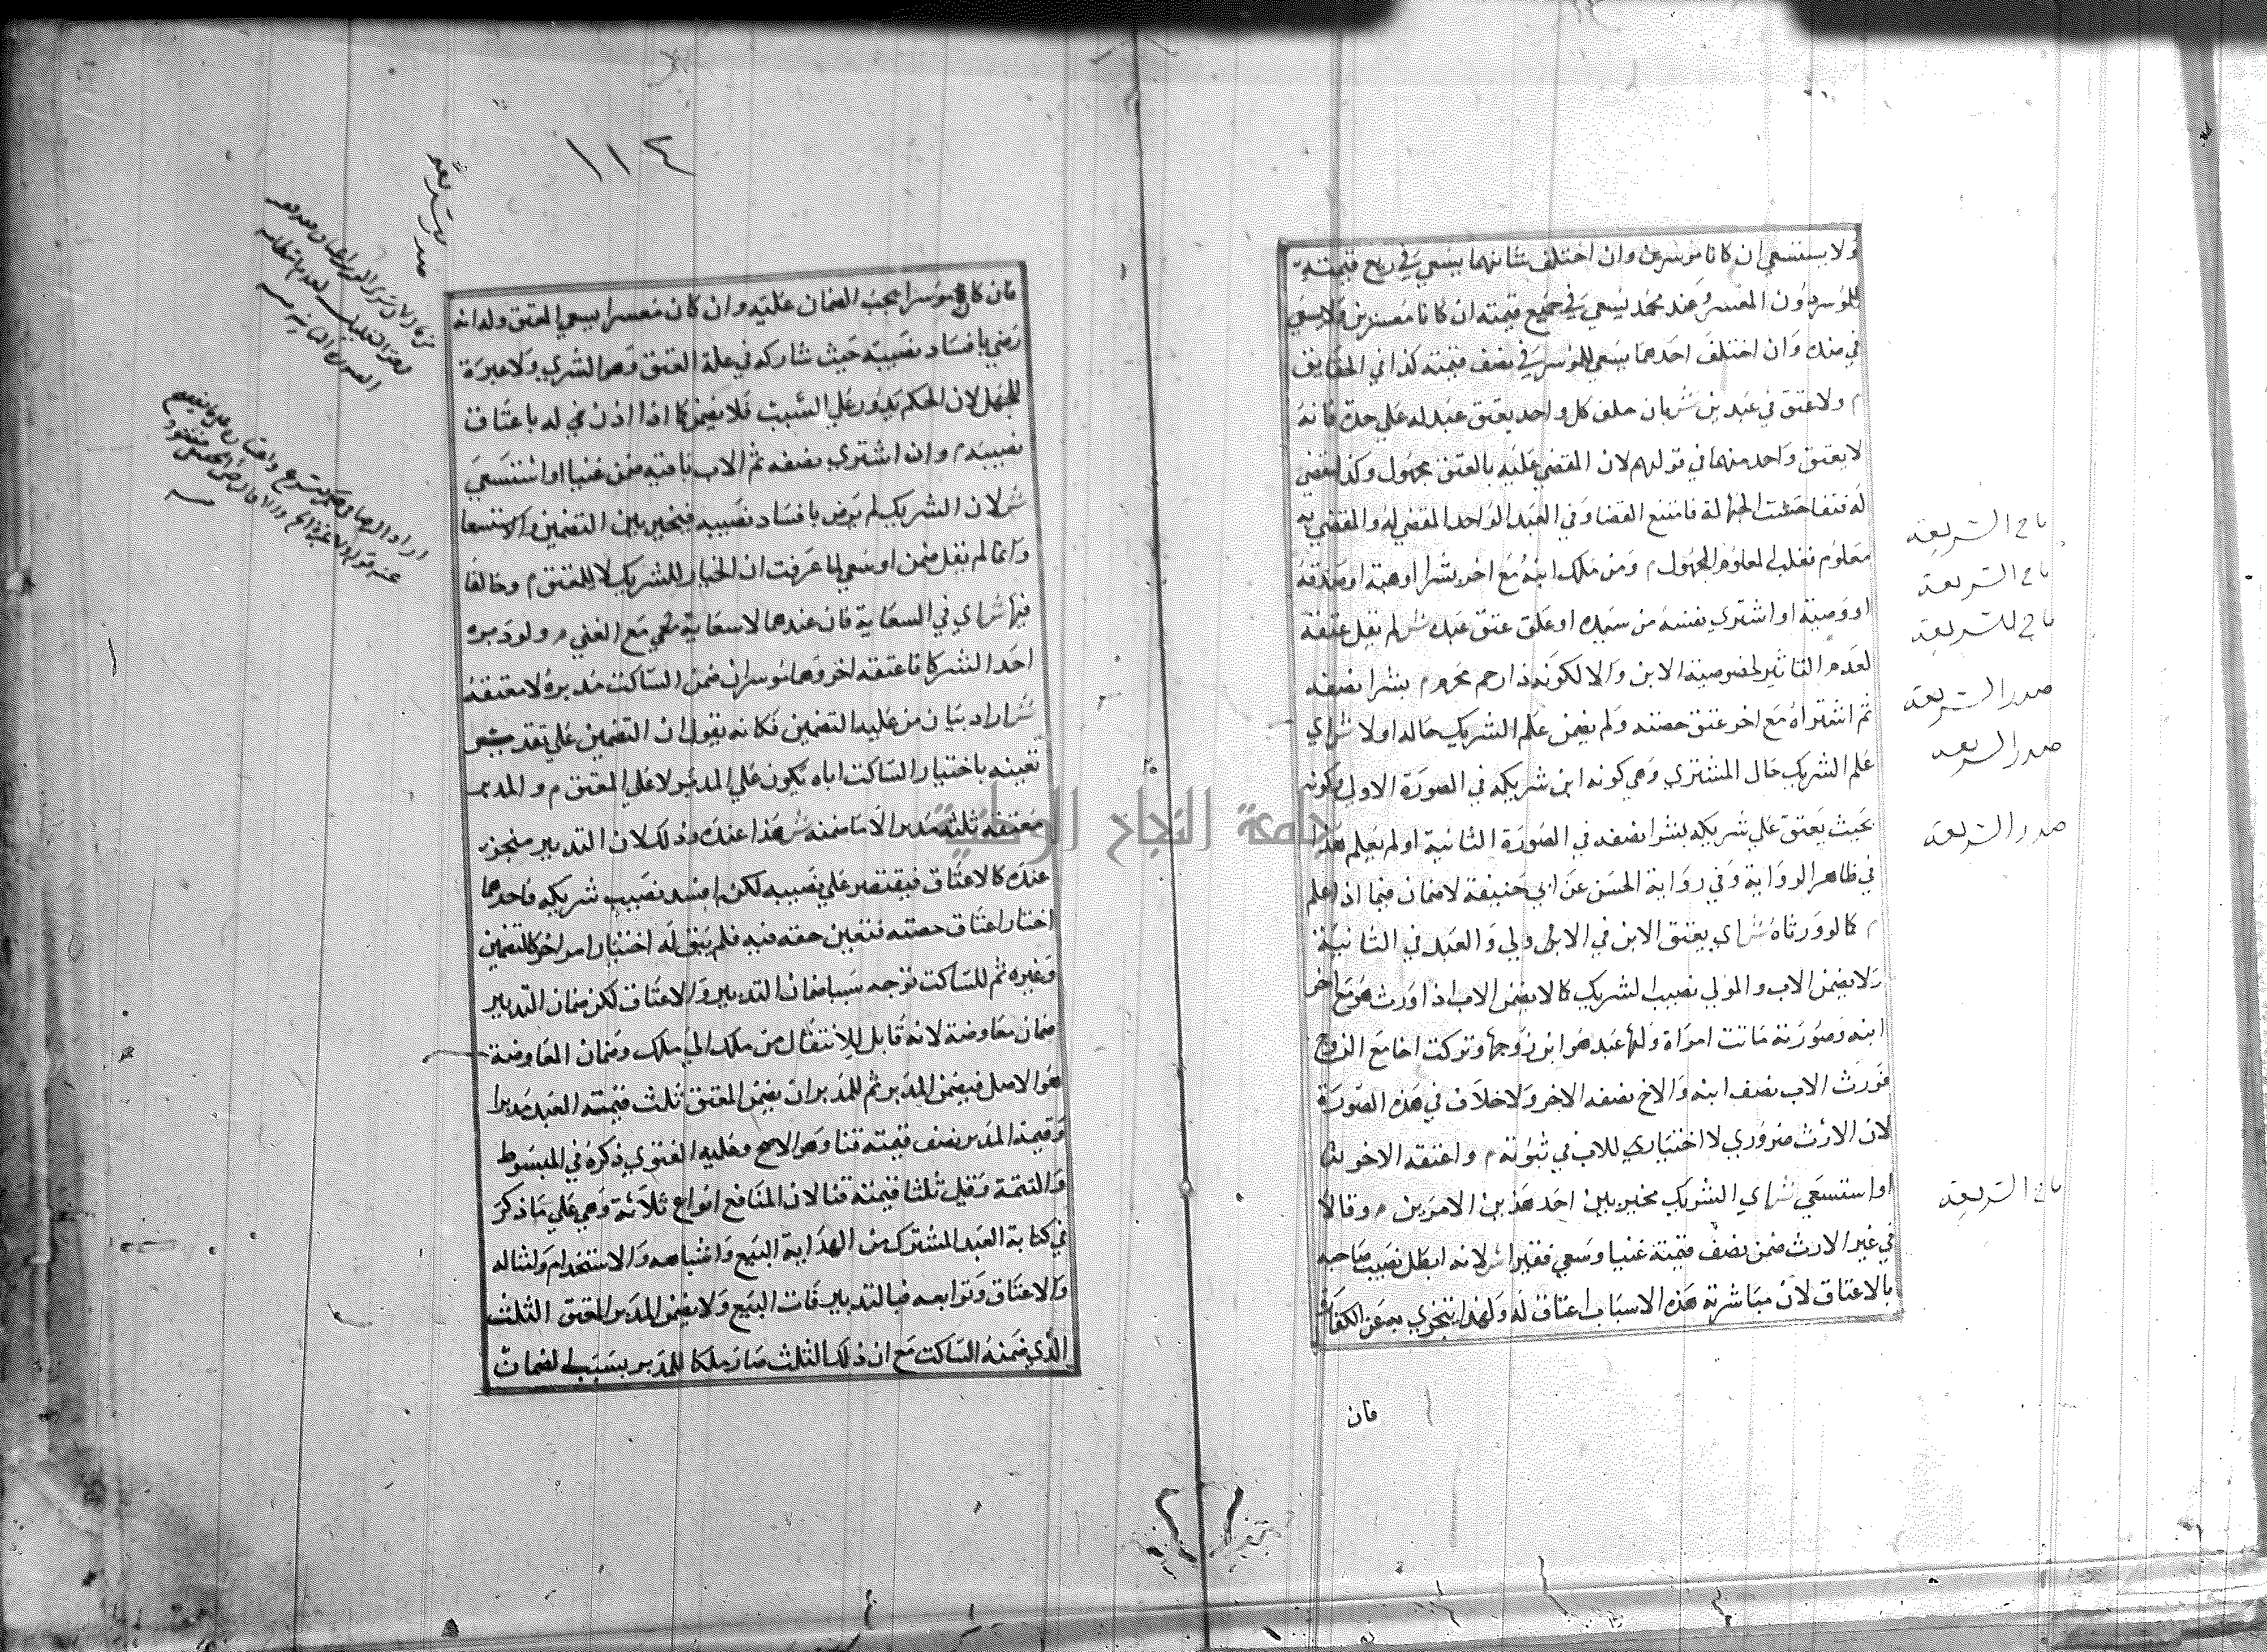 ولا يستسعي ان كانا موسرين وان اختلف شانهما يسعي في ربع قيمته
للموسر دون المعسر وعند محمد يسعي في جميع قيمته ان كانا معسرين ولا يسعي
في منه وان اختلف احدهما يسعي للموسر في نصف قيمته كذا في الحقايق
م ولا عتق في عبدين ش بان حلف كل واحد بعتق عبد له علي حدة فانه
لا يعتق واحد منهما في قولهم لان المقضي عليه بالعتق مجهول وكذا المقضي
له فتفاحشت الجهالة فامتنع القضا وفي العبد الواحد المقضي له والمقضي به
معلوم فغلب المعلوم المجهول م ومن ملك ابنه مع اخر بشرا او هبة او صدقة
او وصية او اشتري نفسه من سيده او علق عتق عبده ش لم يقل عتقه
لعدم التاثير لخصوصية الابن والا لكونه ذا رحم محرم م بشرا نصفه
ثم اشتراه مع اخر عتق حصته ولم يضمن علم الشريك حاله اولا ش اي
علم الشريك حال المشتري وهي كونه ابن شريكه في الصورة الاولي وكونه
بحيث يعتق علي شريكه بشرا نصفه في الصورة الثانية او لم يعلم هذا
في ظاهر الرواية وفي رواية الحسن عن ابي حنيفة لا ضمان فيما اذا علم
م كما لو ورثاه ش اي يعتق الابن في الاولي والعبد في الثانية
ولا يضمن الاب والمولي نصيب الشريك كما لا يضمن الاب اذا ورث هو مع اخر
ابنه وصورته ماتت امراة ولها عبد هو ابن زوجها وتركت اخا مع الزوج
فورث الاب نصف ابنه والاخ نصفه الاخر ولا خلاف في هذه الصورة
لان الارث ضروري لا اختياري للاب في ثبوته م واعتقه الاخر
او استسعي ش اي الشريك مخير بين احد هذين الامرين م وقالا
في غير الارث ضمن نصف قيمته غنيا وسعي فقيرا ش لانه ابطل نصيب صاحبه
بالاعتاق لان مباشرته هذه الاسباب اعتاق له ولهذا يتجزي به عن الكفارة
فان
تاج الشريعة
تاج الشريعة
تاج الشريعة
صدر الشريعة
صدر الشريعة
صدر الشريعة
تاج الشريعة
١١٤
فان كان موسرا يجب الضمان عليه وان كان معسرا يسعي المعتق وله انه
رضي بافساد نصيبه حيث شاركه في علة العتق وهو الشري ولا عبرة
للجهل لان الحكم يدور علي السبب فلا يضمن كما اذا اذن في له باعتاق
نصيبه م وان اشتري نصفه ثم الاب باقيه ضمن غنيا او استسعي
ش لان الشريك لم يرض بافساد نصيبه فيخير بين التضمين والاستسعا
وانما لم يقل ضمن او سعي لما عرفت ان الخيار للشريك لا للمعتق م وخالفا
فيها ش اي في السعاية فان عندهما لا سعاية مع الغني م ولو دبره
احد الشركا فاعتقه اخر وهما موسران ضمن الساكت مدبره لا معتقه
ش اراد بيان من عليه التضمين فكانه يقول ان التضمين علي تقدير
تعينه باختيار الساكت اياه يكون علي المدبر لا علي المعتق م والمدبر
معتقه ثلثه مدبرا لا ما ضمنه ش هذا عنده وذلك لان التدبير متجز
عنده كالاعتاق فيقتصر علي نصيبه لكن افسد نصيب شريكه فاحدهما
اختار اعتاق حصته فتعين حقه فيه فلم يبق له اختيار امر اخر كالتضمين
وغيره ثم للساكت توجه سببا ضمان التدبير والاعتاق لكن ضمان التدبير
ضمان معاوضة لانه قابل للانتقال من ملك الي ملك وضمان المعاوضة
هو الاصل فيضمن المدبر ثم للمدبر ان يضمن المعتق ثلث قيمته العبد مدبرا
وقيمة المدبر نصف قيمته قنا وهو الاصح وعليه الفتوي ذكره في المبسوط
والتتمة وقيل ثلثا قيمته قنا لان المنافع انواع ثلاثة وهي علي ما ذكر
في كتابة العبد المشترك من الهداية البيع واشباهه والاستخدام وامثاله
والاعتاق وتوابعه فبالتدبير فات البيع ولا يضمن المدبر المعتق الثلث
الذي ضمنه الساكت مع ان ذلك الثلث صار ملكا للمدبر بسبب الضمان
صدر شريعة
جامعة النجاح الوطنية